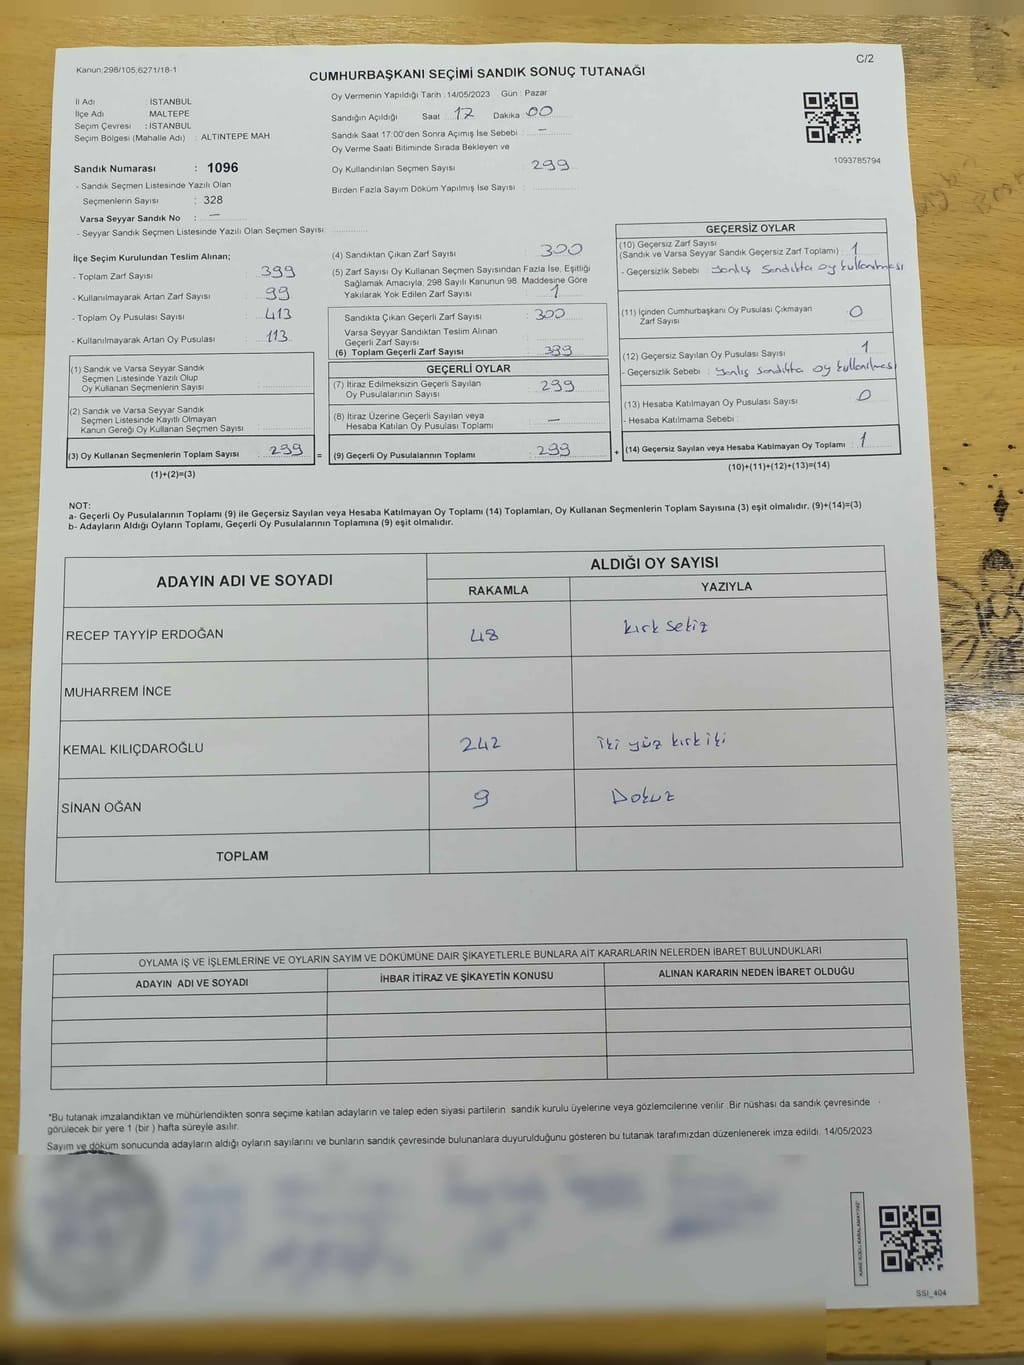 Kanun;298/105;6271/18-1
C/2
CUMHURBAŞKANI SEÇİMİ SANDIK SONUÇ TUTANAĞI
İl Adı : İSTANBUL
İlçe Adı : MALTEPE
Seçim Çevresi : İSTANBUL
Seçim Bölgesi (Mahalle Adı) : ALTINTEPE MAH
Sandık Numarası : 1096
- Sandık Seçmen Listesinde Yazılı Olan
Seçmenlerin Sayısı : 328
Varsa Seyyar Sandık No : —
- Seyyar Sandık Seçmen Listesinde Yazılı Olan Seçmen Sayısı:
Oy Vermenin Yapıldığı Tarih : 14/05/2023 Gün : Pazar
Sandığın Açıldığı Saat : 17 Dakika : 00
Sandık Saat 17:00'den Sonra Açımış İse Sebebi : —
Oy Verme Saati Bitiminde Sırada Bekleyen ve
Oy Kullandırılan Seçmen Sayısı : 299
Birden Fazla Sayım Döküm Yapılmış İse Sayısı :
1093785794
İlçe Seçim Kurulundan Teslim Alınan;
- Toplam Zarf Sayısı : 399
- Kullanılmayarak Artan Zarf Sayısı : 99
- Toplam Oy Pusulası Sayısı : 413
- Kullanılmayarak Artan Oy Pusulası : 113
(1) Sandık ve Varsa Seyyar Sandık
Seçmen Listesinde Yazılı Olup
Oy Kullanan Seçmenlerin Sayısı :
(2) Sandık ve Varsa Seyyar Sandık
Seçmen Listesinde Kayıtlı Olmayan
Kanun Gereği Oy Kullanan Seçmen Sayısı :
(3) Oy Kullanan Seçmenlerin Toplam Sayısı : 299 =
(1)+(2)=(3)
(4) Sandıktan Çıkan Zarf Sayısı : 300
(5) Zarf Sayısı Oy Kullanan Seçmen Sayısından Fazla İse, Eşitliği
Sağlamak Amacıyla; 298 Sayılı Kanunun 98. Maddesine Göre
Yakılarak Yok Edilen Zarf Sayısı : 1
Sandıkta Çıkan Geçerli Zarf Sayısı : 300
Varsa Seyyar Sandıktan Teslim Alınan
Geçerli Zarf Sayısı :
(6) Toplam Geçerli Zarf Sayısı :
GEÇERLİ OYLAR
(7) İtiraz Edilmeksizin Geçerli Sayılan
Oy Pusulalarının Sayısı : 299
(8) İtiraz Üzerine Geçerli Sayılan veya
Hesaba Katılan Oy Pusulası Toplamı : —
(9) Geçerli Oy Pusulalarının Toplamı : 299 +
GEÇERSİZ OYLAR
(10) Geçersiz Zarf Sayısı
(Sandık ve Varsa Seyyar Sandık Geçersiz Zarf Toplamı) : 1
- Geçersizlik Sebebi : Yanlış Sandıkta oy kullanılması
(11) İçinden Cumhurbaşkanı Oy Pusulası Çıkmayan
Zarf Sayısı : 0
(12) Geçersiz Sayılan Oy Pusulası Sayısı : 1
- Geçersizlik Sebebi : Yanlış Sandıkta oy kullanılması
(13) Hesaba Katılmayan Oy Pusulası Sayısı : 0
- Hesaba Katılmama Sebebi :
(14) Geçersiz Sayılan veya Hesaba Katılmayan Oy Toplamı : 1
(10)+(11)+(12)+(13)=(14)
NOT:
a- Geçerli Oy Pusulalarının Toplamı (9) ile Geçersiz Sayılan veya Hesaba Katılmayan Oy Toplamı (14) Toplamları, Oy Kullanan Seçmenlerin Toplam Sayısına (3) eşit olmalıdır. (9)+(14)=(3)
b- Adayların Aldığı Oyların Toplamı, Geçerli Oy Pusulalarının Toplamına (9) eşit olmalıdır.
ADAYIN ADI VE SOYADI
ALDIĞI OY SAYISI
RAKAMLA YAZIYLA
RECEP TAYYİP ERDOĞAN 48 kırk sekiz
MUHARREM İNCE
KEMAL KILIÇDAROĞLU 242 iki yüz kırk iki
SİNAN OĞAN 9 Dokuz
TOPLAM
OYLAMA İŞ VE İŞLEMLERİNE VE OYLARIN SAYIM VE DÖKÜMÜNE DAİR ŞİKAYETLERLE BUNLARA AİT KARARLARIN NELERDEN İBARET BULUNDUKLARI
ADAYIN ADI VE SOYADI İHBAR İTİRAZ VE ŞİKAYETİN KONUSU ALINAN KARARIN NEDEN İBARET OLDUĞU
*Bu tutanak imzalandıktan ve mühürlendikten sonra seçime katılan adayların ve talep eden siyasi partilerin sandık kurulu üyelerine veya gözlemcilerine verilir. Bir nüshası da sandık çevresinde
görülecek bir yere 1 (bir ) hafta süreyle asılır.
Sayım ve döküm sonucunda adayların aldığı oyların sayılarını ve bunların sandık çevresinde bulunanlara duyurulduğunu gösteren bu tutanak tarafımızdan düzenlenerek imza edildi. 14/05/2023
KARE KODU KARALAMAYINIZ!
SSİ_404